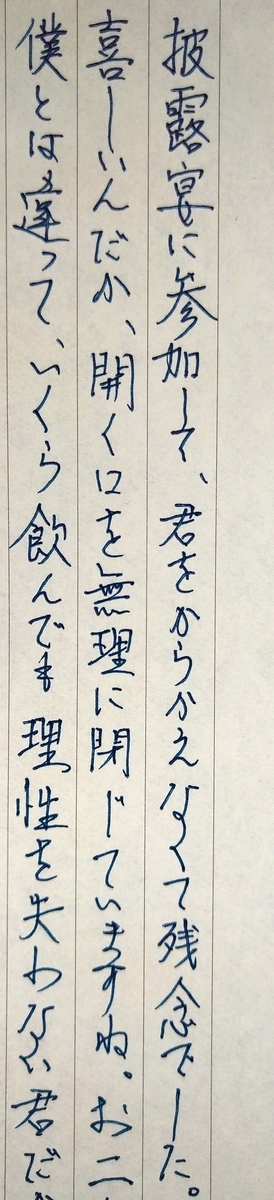 披露宴に参加して、君をからかえなくて残念でした。
喜しいんだか、開く口を無理に閉じていますね。お二
僕とは違って、いくら飲んでも理性を失わない君だ